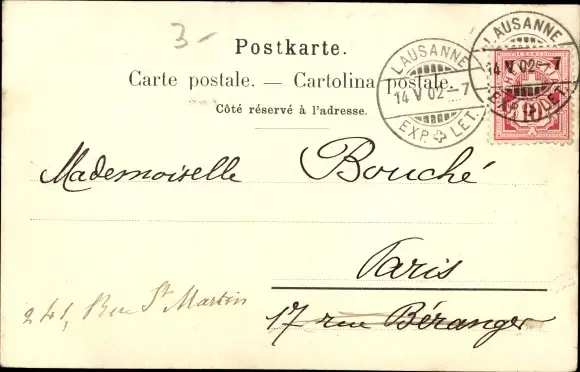 3-
Postkarte.
Carte postale. — Cartolina postale.
Côté réservé à l'adresse.
LAUSANNE
14 V 02-7
EXP. LET.
LAUSANNE
14 V 02-7
EXP. LET.
10
Mademoiselle Bouché
Paris
241, Rue St Martin
17 rue Béranger